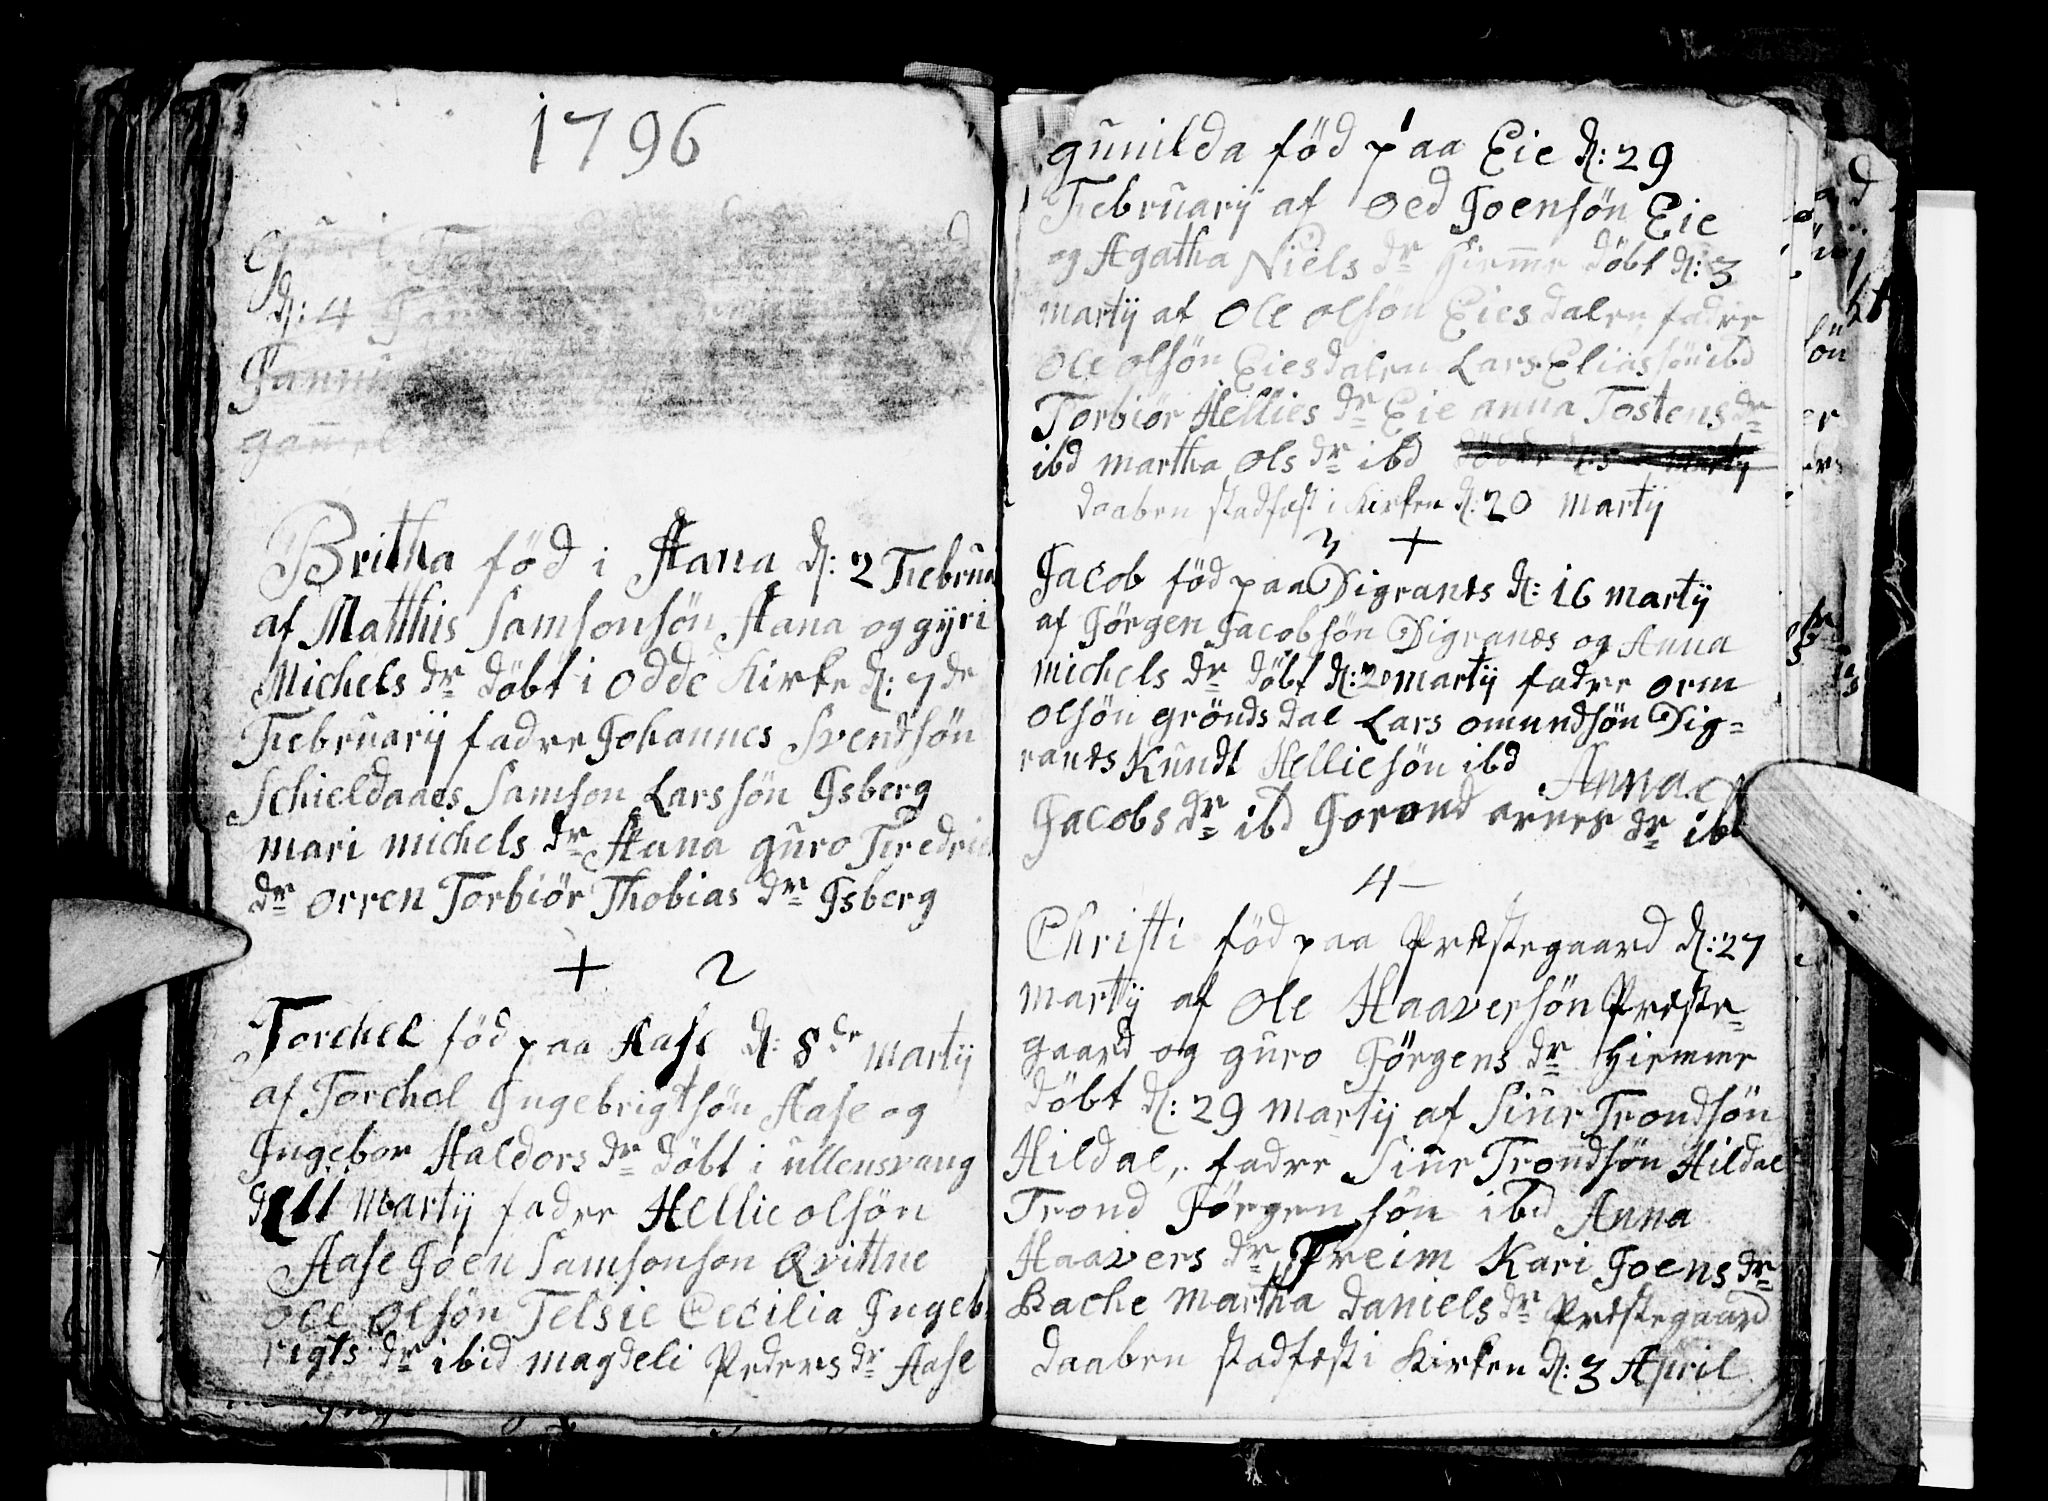 1796
d: 4
Britha föd i Aana d: 2 Februa
af Matthis Samsonsön Aana og gÿri
Michels dr döbt i Odde Kirke d: 7de
Februarÿ fadre Johannes Svendsön
Schieldaaes Samson Larssön Jsberg
mari michels dr Aana guro Fredric
dr orren Torbiör Thobias dr Jsberg
+ 2
Torchel föd paa Aase d: 8de martÿ
af Torchel Jngebrigtsön Aase og
Jngebor Haldors dr döbt i ullensvang
d 11 martÿ fadre Hellie olsön
Aase Joen Samsonson Qvittne
ole olsön Telsie Cecilia Jngeb
rigts dr ibid magdeli Peders dr Aase
1
gunilda föd paa Eie d: 29
Februarÿ af oed Joensön Eie
og Agatha Niels dr Hiemme döbt d: 3
martÿ af Ole olsön Eiesdalen fadre
Ole olsön Eiesdalen Lars Eliassön ibd
Torbiör Hellies dr Eie anna Tostens dr
ibd martha ols dr ibd
daaben stadfæst i Kirken d: 20 martÿ
3 +
Jacob föd paa Digranes d: 16 martÿ
af Jörgen Jacobsön Digranes og Anna
michels dr döbt d: 20 martÿ fadre orm
olsön gröndsdal Lars omundsön Dig=
ranes Kundt Helliesön ibd Anna
Jacobs dr ibd Gorond arnes dr ibd
4
Christi föd paa Præstegaard d: 27
martÿ af Ole Haaversön Præste=
gaard og guro Jörgens dr Hiemme
döbt d: 29 martÿ af Siur Trondsön
Hildal, fadre Siur Trondsön Hildal
Trond Jörgensön ibd Anna
Haavers dr Freim Kari Joens dr
Bache martha daniels dr Præstegaard
daaben stadfæst i Kirken d: 3 April